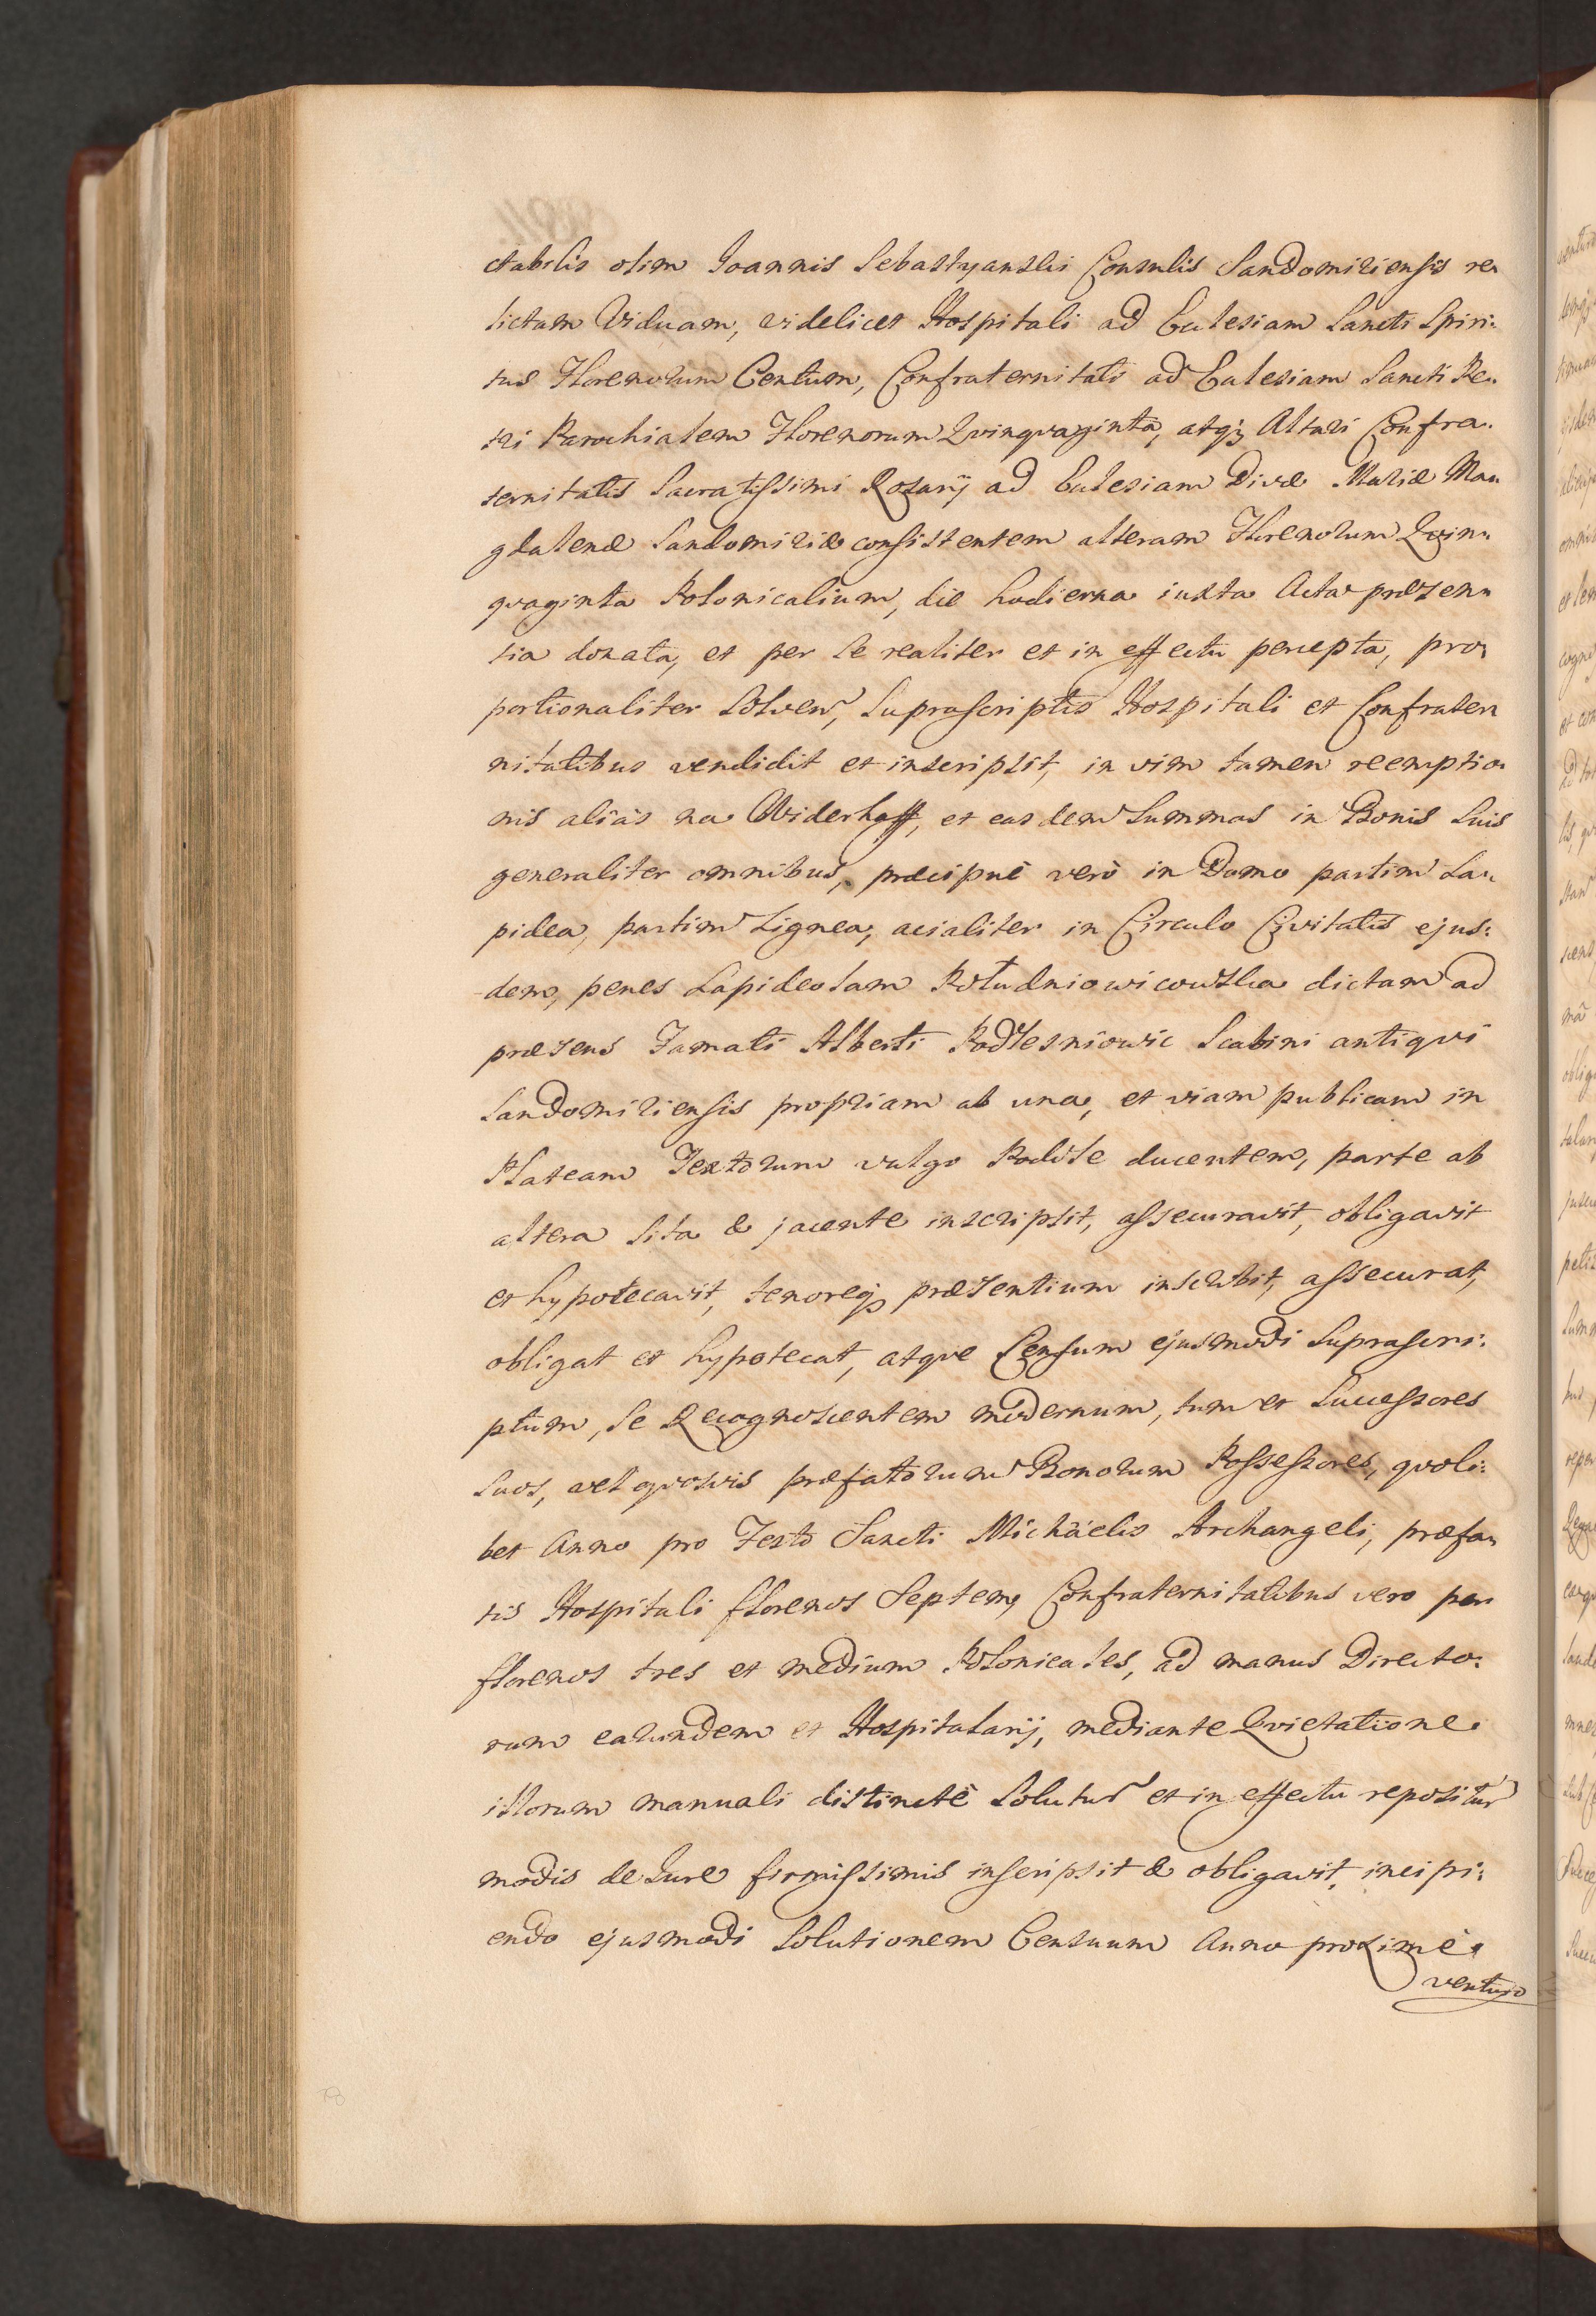 ctabilis olim Joannis Sebastyanski Consulis Sandomiriensis re„
lictam Viduam, videlicet Hospitali ad Ecclesiam Sancti Spiri:
tus Florenorum Centum, Confraternitati ad Ecclesiam Sancti Pe„
tri Parochialem Florenorum Qvinqvaginta, atq; Altari Confra„
ternitatis Sacratissimi Rosarij ad Ecclesiam Divæ Mariæ Ma„
gdalenæ Sandomiriæ consistentem alteram Florenorum Qvin„
qvaginta Polonicalium, die hodierna iuxta Acta præsen„
tia donata, et per se realiter et in effectu percepta, pro„
portionaliter Solven, Suprascriptis Hospitali et Confrater„
nitatibus vendidit et inscripsit, in vim tamen reemptio„
nis aliàs na Widerkaff, et easdem Summas in Bonis Suis
generaliter omnibus, præcipuè verò in Domo partim La„
pidea, partim Lignea, acialiter in Circulo Civitatis ejus:
dem, penes Lapideolam Południowicowska dictam ad
præsens Famati Alberti Podlesniowic Scabini antiqvi
Sandomiriensis propriam ab una, et viam publicam in
Plateam Textorum vulgo Podole ducentem, parte ab
altera sita & jacente inscripsit, assecuravit, obligavit
et hypotecavit, tenoreq; præsentium inscribit, assecurat,
obligat et hypotecat, atqve Censum ejusmodi Suprascri:
ptum, Se Recognoscentem modernum, tum et Successores
Suos, vel qvosvis præfatorum Bonorum Possessores, qvoli:
bet Anno pro Festo Sancti Michäelis Archangeli, præfa„
tis Hospitali florenos Septem, Confraternitatibus vero per
florenos tres et medium Polonicales, ad manus Directo:
rum earundem et Hospitalarij, mediante Qvietatione
istorum manuali distinctè Solutur et in effectu repositur
modis de Jure firmissimis inscripsit & obligavit, incipi:
endo ejusmodi Solutionem Censuum Anno proximè
venturo